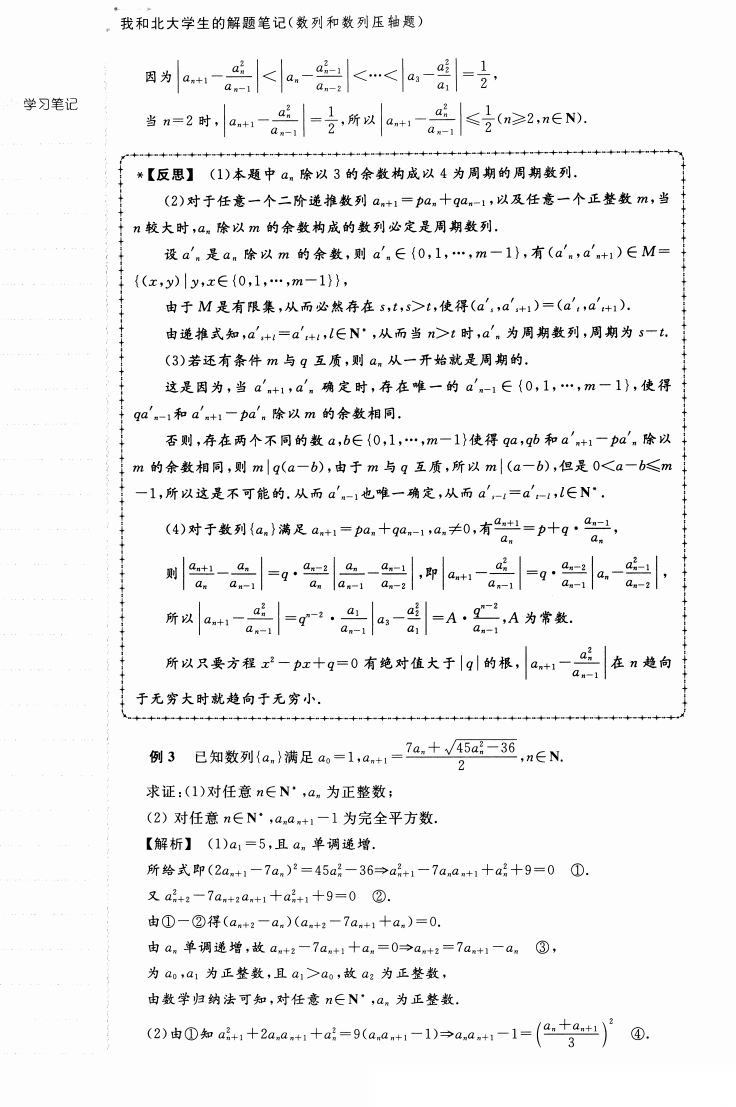 我和北大学生的解题笔记(数列和数列压轴题)
因为|a_{n+1}-\frac{a_n^2}{a_{n-1}}|<|a_n-\frac{a_{n-1}^2}{a_{n-2}}|<…<|a_3-\frac{a_2^2}{a_1}|=\frac{1}{2},
学习笔记
当 n=2 时,|a_{n+1}-\frac{a_n^2}{a_{n-1}}|=\frac{1}{2},所以|a_{n+1}-\frac{a_n^2}{a_{n-1}}|≤\frac{1}{2}(n≥2,n∈N).
*【反思】 (1)本题中 a_n 除以 3 的余数构成以 4 为周期的周期数列.
(2)对于任意一个二阶递推数列 a_{n+1}=pa_n+qa_{n-1},以及任意一个正整数 m,当
n 较大时,a_n 除以 m 的余数构成的数列必定是周期数列.
设 a'_n 是 a_n 除以 m 的余数,则 a'_n∈{0,1,…,m-1},有(a'_n,a'_{n+1})∈M=
{(x,y)|y,x∈{0,1,…,m-1}},
由于 M 是有限集,从而必然存在 s,t,s>t,使得(a'_s,a'_{s+1})=(a'_t,a'_{t+1}).
由递推式知,a'_{s+l}=a'_{t+l},l∈N*,从而当 n>t 时,a'_n 为周期数列,周期为 s-t.
(3)若还有条件 m 与 q 互质,则 a_n 从一开始就是周期的.
这是因为,当 a'_{n+1},a'_n 确定时,存在唯一的 a'_{n-1}∈{0,1,…,m-1},使得
qa'_{n-1}和 a'_{n+1}-pa'_n 除以 m 的余数相同.
否则,存在两个不同的数 a,b∈{0,1,…,m-1}使得 qa,qb 和 a'_{n+1}-pa'_n 除以
m 的余数相同,则 m|q(a-b),由于 m 与 q 互质,所以 m|(a-b),但是 0<a-b≤m
-1,所以这是不可能的.从而 a'_{n-1}也唯一确定,从而 a'_{s-l}=a'_{t-l},l∈N*.
(4)对于数列{a_n}满足 a_{n+1}=pa_n+qa_{n-1},a_n≠0,有\frac{a_{n+1}}{a_n}=p+q·\frac{a_{n-1}}{a_n},
则|\frac{a_{n+1}}{a_n}-\frac{a_n}{a_{n-1}}|=q·\frac{a_{n-2}}{a_n}|\frac{a_n}{a_{n-1}}-\frac{a_{n-1}}{a_{n-2}}|,即|a_{n+1}-\frac{a_n^2}{a_{n-1}}|=q·\frac{a_{n-2}}{a_{n-1}}|a_n-\frac{a_{n-1}^2}{a_{n-2}}|,
所以|a_{n+1}-\frac{a_n^2}{a_{n-1}}|=q^{n-2}·\frac{a_1}{a_{n-1}}|a_3-\frac{a_2^2}{a_1}|=A·\frac{q^{n-2}}{a_{n-1}},A 为常数.
所以只要方程 x^2-px+q=0 有绝对值大于|q|的根,|a_{n+1}-\frac{a_n^2}{a_{n-1}}|在 n 趋向
于无穷大时就趋向于无穷小.
例 3 已知数列{a_n}满足 a_0=1,a_{n+1}=\frac{7a_n+\sqrt{45a_n^2-36}}{2},n∈N.
求证:(1)对任意 n∈N*,a_n 为正整数;
(2) 对任意 n∈N*,a_na_{n+1}-1 为完全平方数.
【解析】 (1)a_1=5,且 a_n 单调递增.
所给式即(2a_{n+1}-7a_n)^2=45a_n^2-36⇒a_{n+1}^2-7a_na_{n+1}+a_n^2+9=0 ①.
又 a_{n+2}^2-7a_{n+2}a_{n+1}+a_{n+1}^2+9=0 ②.
由①-②得(a_{n+2}-a_n)(a_{n+2}-7a_{n+1}+a_n)=0.
由 a_n 单调递增,故 a_{n+2}-7a_{n+1}+a_n=0⇒a_{n+2}=7a_{n+1}-a_n ③,
为 a_0,a_1 为正整数,且 a_1>a_0,故 a_2 为正整数,
由数学归纳法可知,对任意 n∈N*,a_n 为正整数.
(2)由①知 a_{n+1}^2+2a_na_{n+1}+a_n^2=9(a_na_{n+1}-1)⇒a_na_{n+1}-1=(\frac{a_n+a_{n+1}}{3})^2 ④.